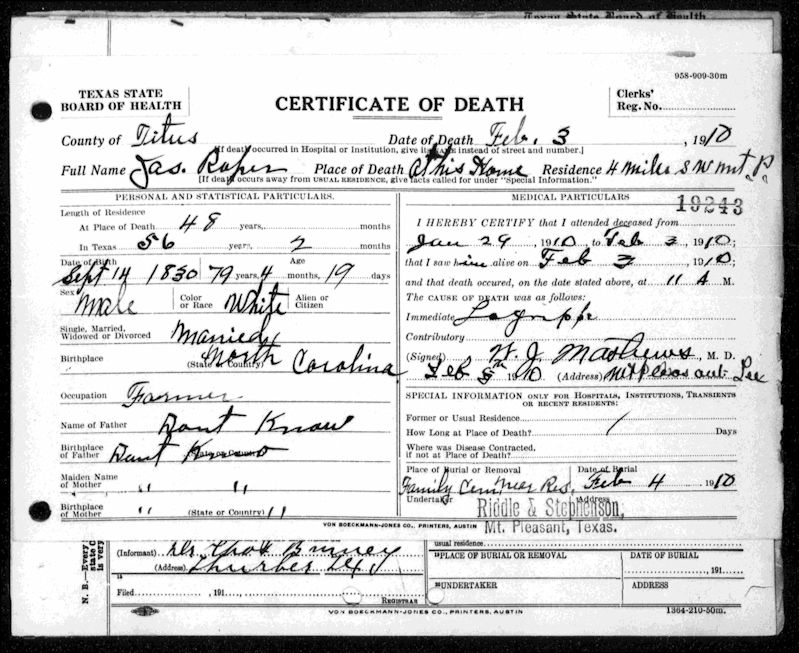 Texas State Board of Health
958-909-30m
TEXAS STATE
BOARD OF HEALTH
CERTIFICATE OF DEATH
Clerks'
Reg. No.
County of Titus Date of Death Feb. 3, 1910
[If death occurred in Hospital or Institution, give its NAME instead of street and number.]
Full Name Jas. Roper Place of Death At his Home Residence 4 miles S W Mt. P.
[If death occurs away from USUAL RESIDENCE, give facts called for under "Special Information."]
PERSONAL AND STATISTICAL PARTICULARS.
Length of Residence
At Place of Death 48 years, months
In Texas 56 years, 2 months
Date of Birth Age
Sept 14 1830 79 years 4 months, 19 days
Sex Male Color or Race White Alien or Citizen
Single, Married, Widowed or Divorced Married
Birthplace (State or Country) North Carolina
Occupation Farmer
Name of Father Dont Know
Birthplace of Father Dont Know (State or Country)
Maiden Name of Mother " "
Birthplace of Mother " (State or Country) "
MEDICAL PARTICULARS
19243
I HEREBY CERTIFY that I attended deceased from
Jan 29 1910, to Feb 3 1910;
that I saw him alive on Feb 3 1910;
and that death occurred, on the date stated above, at 11 A M.
The CAUSE OF DEATH was as follows:
Immediate Lagrippe
Contributory
(Signed) W. J. Mathews, M. D.
Feb 5th 1910 (Address) Mt Pleasant
SPECIAL INFORMATION ONLY FOR HOSPITALS, INSTITUTIONS, TRANSIENTS
OR RECENT RESIDENTS:
Former or Usual Residence
How Long at Place of Death? Days
Where was Disease Contracted,
if not at Place of Death?
Place of Burial or Removal Date of Burial
Family Cem Near Res. Feb 4 1910
Undertaker Address
Riddle & Stephenson,
Mt. Pleasant, Texas.
VON BOECKMANN-JONES CO., PRINTERS, AUSTIN
N. B.—Every
state C
is very
(Informant)
(Address) Thurber
15
Filed 191
REGISTRAR
usual residence
PLACE OF BURIAL OR REMOVAL DATE OF BURIAL
191
UNDERTAKER ADDRESS
VON BOECKMANN-JONES CO., PRINTERS, AUSTIN
1364-210-50m.